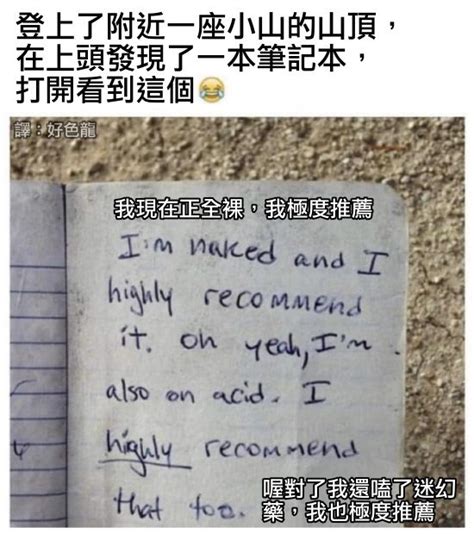 登上了附近一座小山的山頂，
在上頭發現了一本筆記本，
打開看到這個😂
譯：好色龍
我現在正全裸，我極度推薦
I'm naked and I
highly recommend
it. oh yeah, I'm
also on acid. I
highly recommend
that too.
喔對了我還嗑了迷幻
藥，我也極度推薦